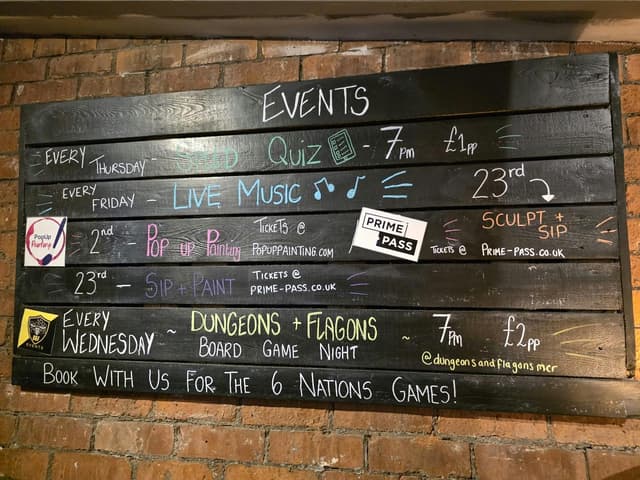 EVENTS
EVERY THURSDAY - SPEED QUIZ - 7pm £1pp
EVERY FRIDAY - LIVE MUSIC
23rd
SCULPT + SIP
TICKETS @ PRIME-PASS.CO.UK
PRIME PASS
PopUp Painting
2nd - POP UP PAinting TICKETS @ POPUPPAINTING.COM
23rd - SIP + PAINT TICKETS @ PRIME-PASS.CO.UK
EVENTS
EVERY WEDNESDAY ~ DUNGEONS + FLAGONS ~ 7pm £2pp
BOARD GAME NIGHT
@dungeonsandflagonsmcr
BOOK WITH US FOR THE 6 NATIONS GAMES!